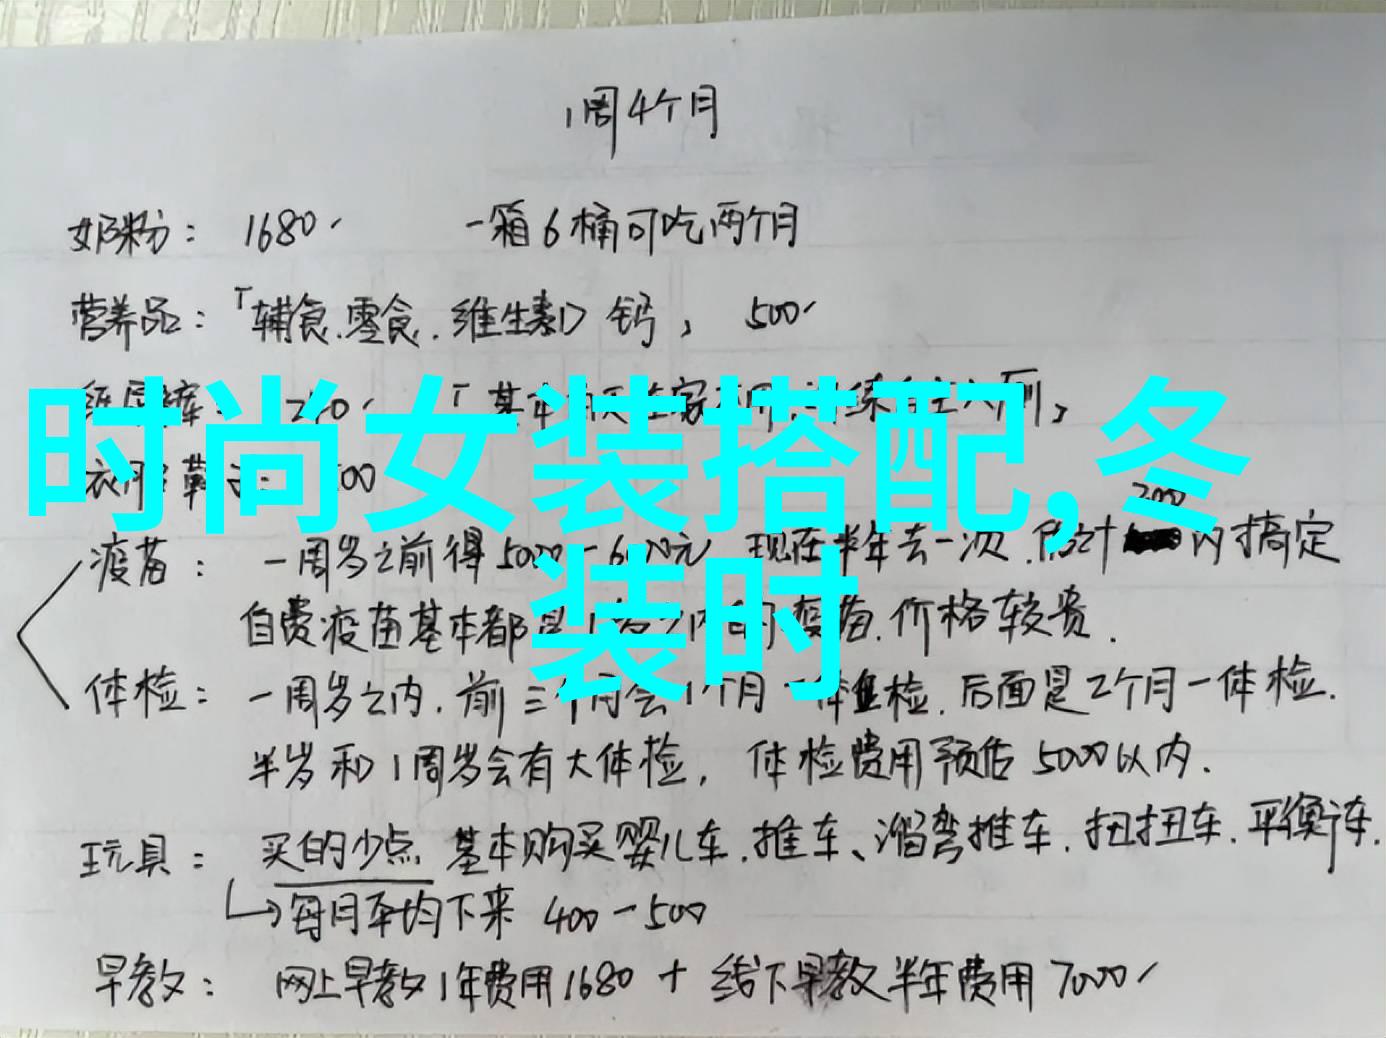 1周4个月
奶粉： 1680 一箱6桶可吃两个月
营养品：「辅食.零食.维生素D 钙， 500
时尚女装搭配,冬
装时
疫苗： 一周岁之前得5000-6000元 现在半年去一次.估计 200 内搞定
自费疫苗基本都是1岁之内的疫苗.价格较贵.
体检： 一周岁之内.前三个月会1个月一体检.后面是2个月一体检.
半岁和1周岁会有大体检， 体检费用预估5000以内.
玩具： 买的少点 基本购买婴儿车.推车、溜弯推车.扭扭车.平衡车.
每月平均下来 400-500
早教： 网上早教1年费用1680 + 线下早教半年费用7000